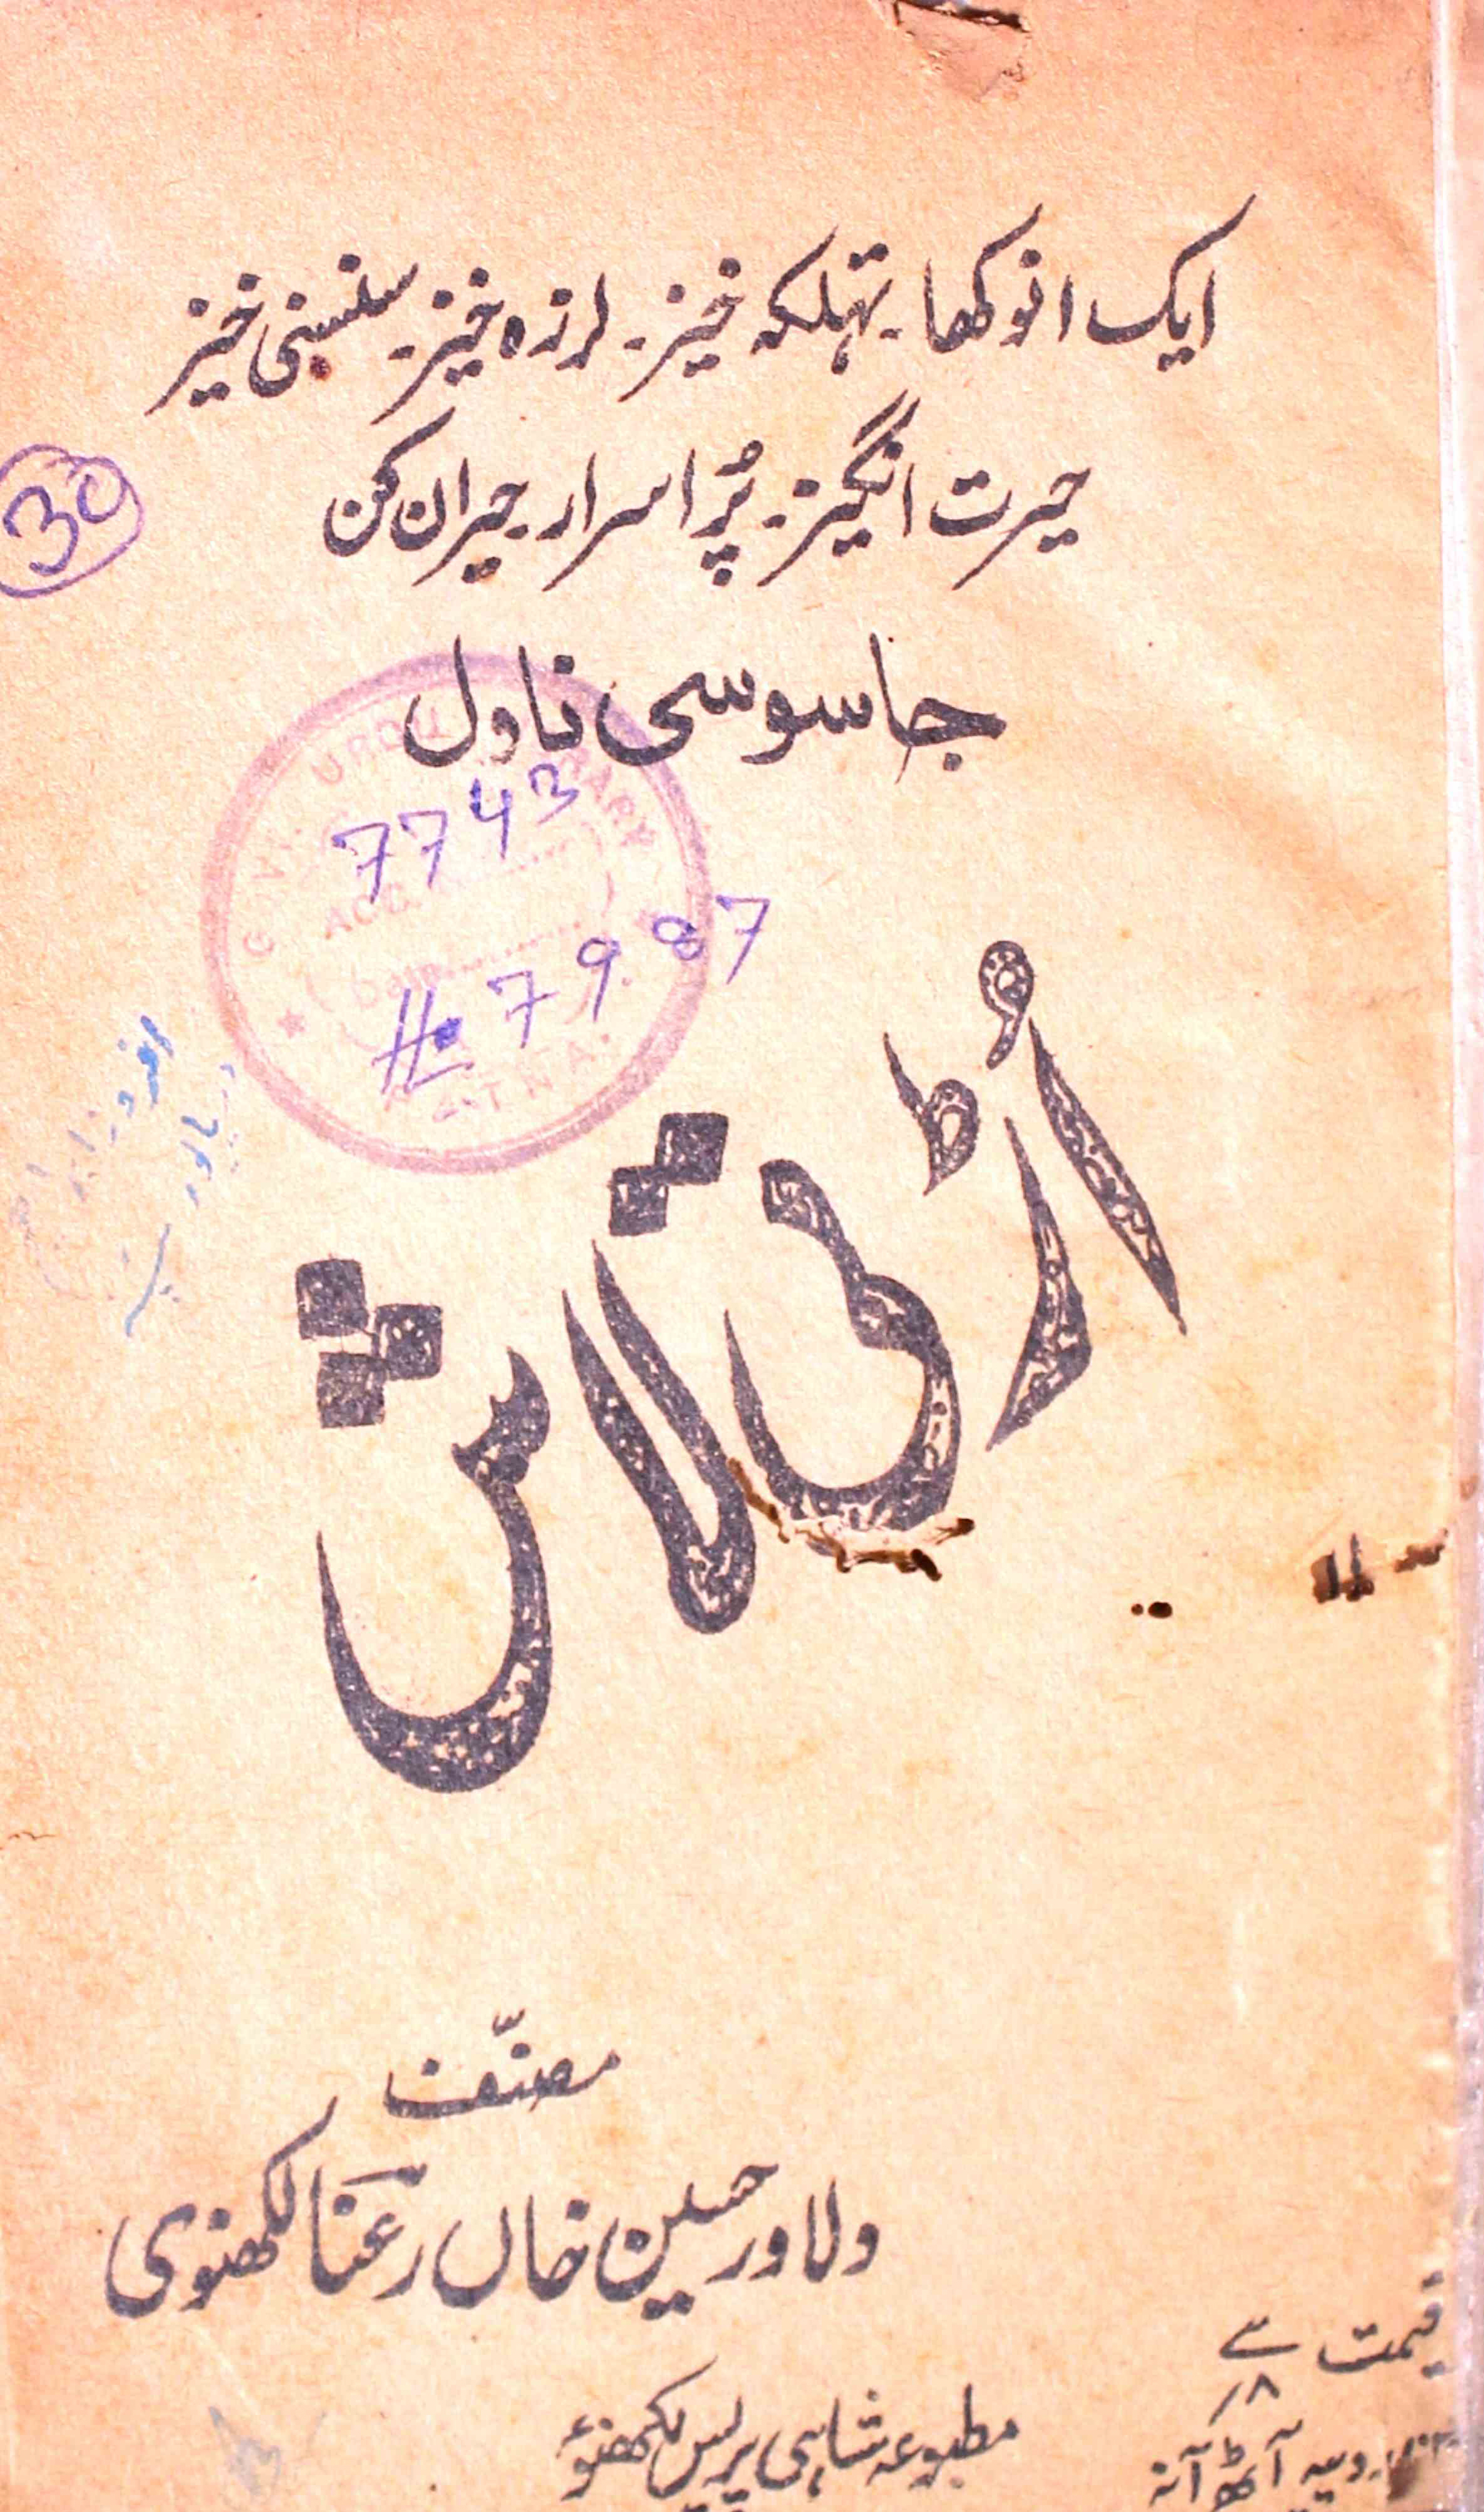 ایک انوکھا۔ تہلکہ خیز۔ لرزہ خیز۔ سنسنی خیز
حیرت انگیز۔ پُر اسرار حیران کن
جاسوسی ناول
30
GOVT. URDU LIBRARY
7743
ACC.
# 7987
PATNA
اُڑتی لاش
مصنّف
دلاور حسین خاں رعنا لکھنوی
قیمت
۸
روپیہ آٹھ آنہ
مطبوعہ شاہی پریس لکھنؤ